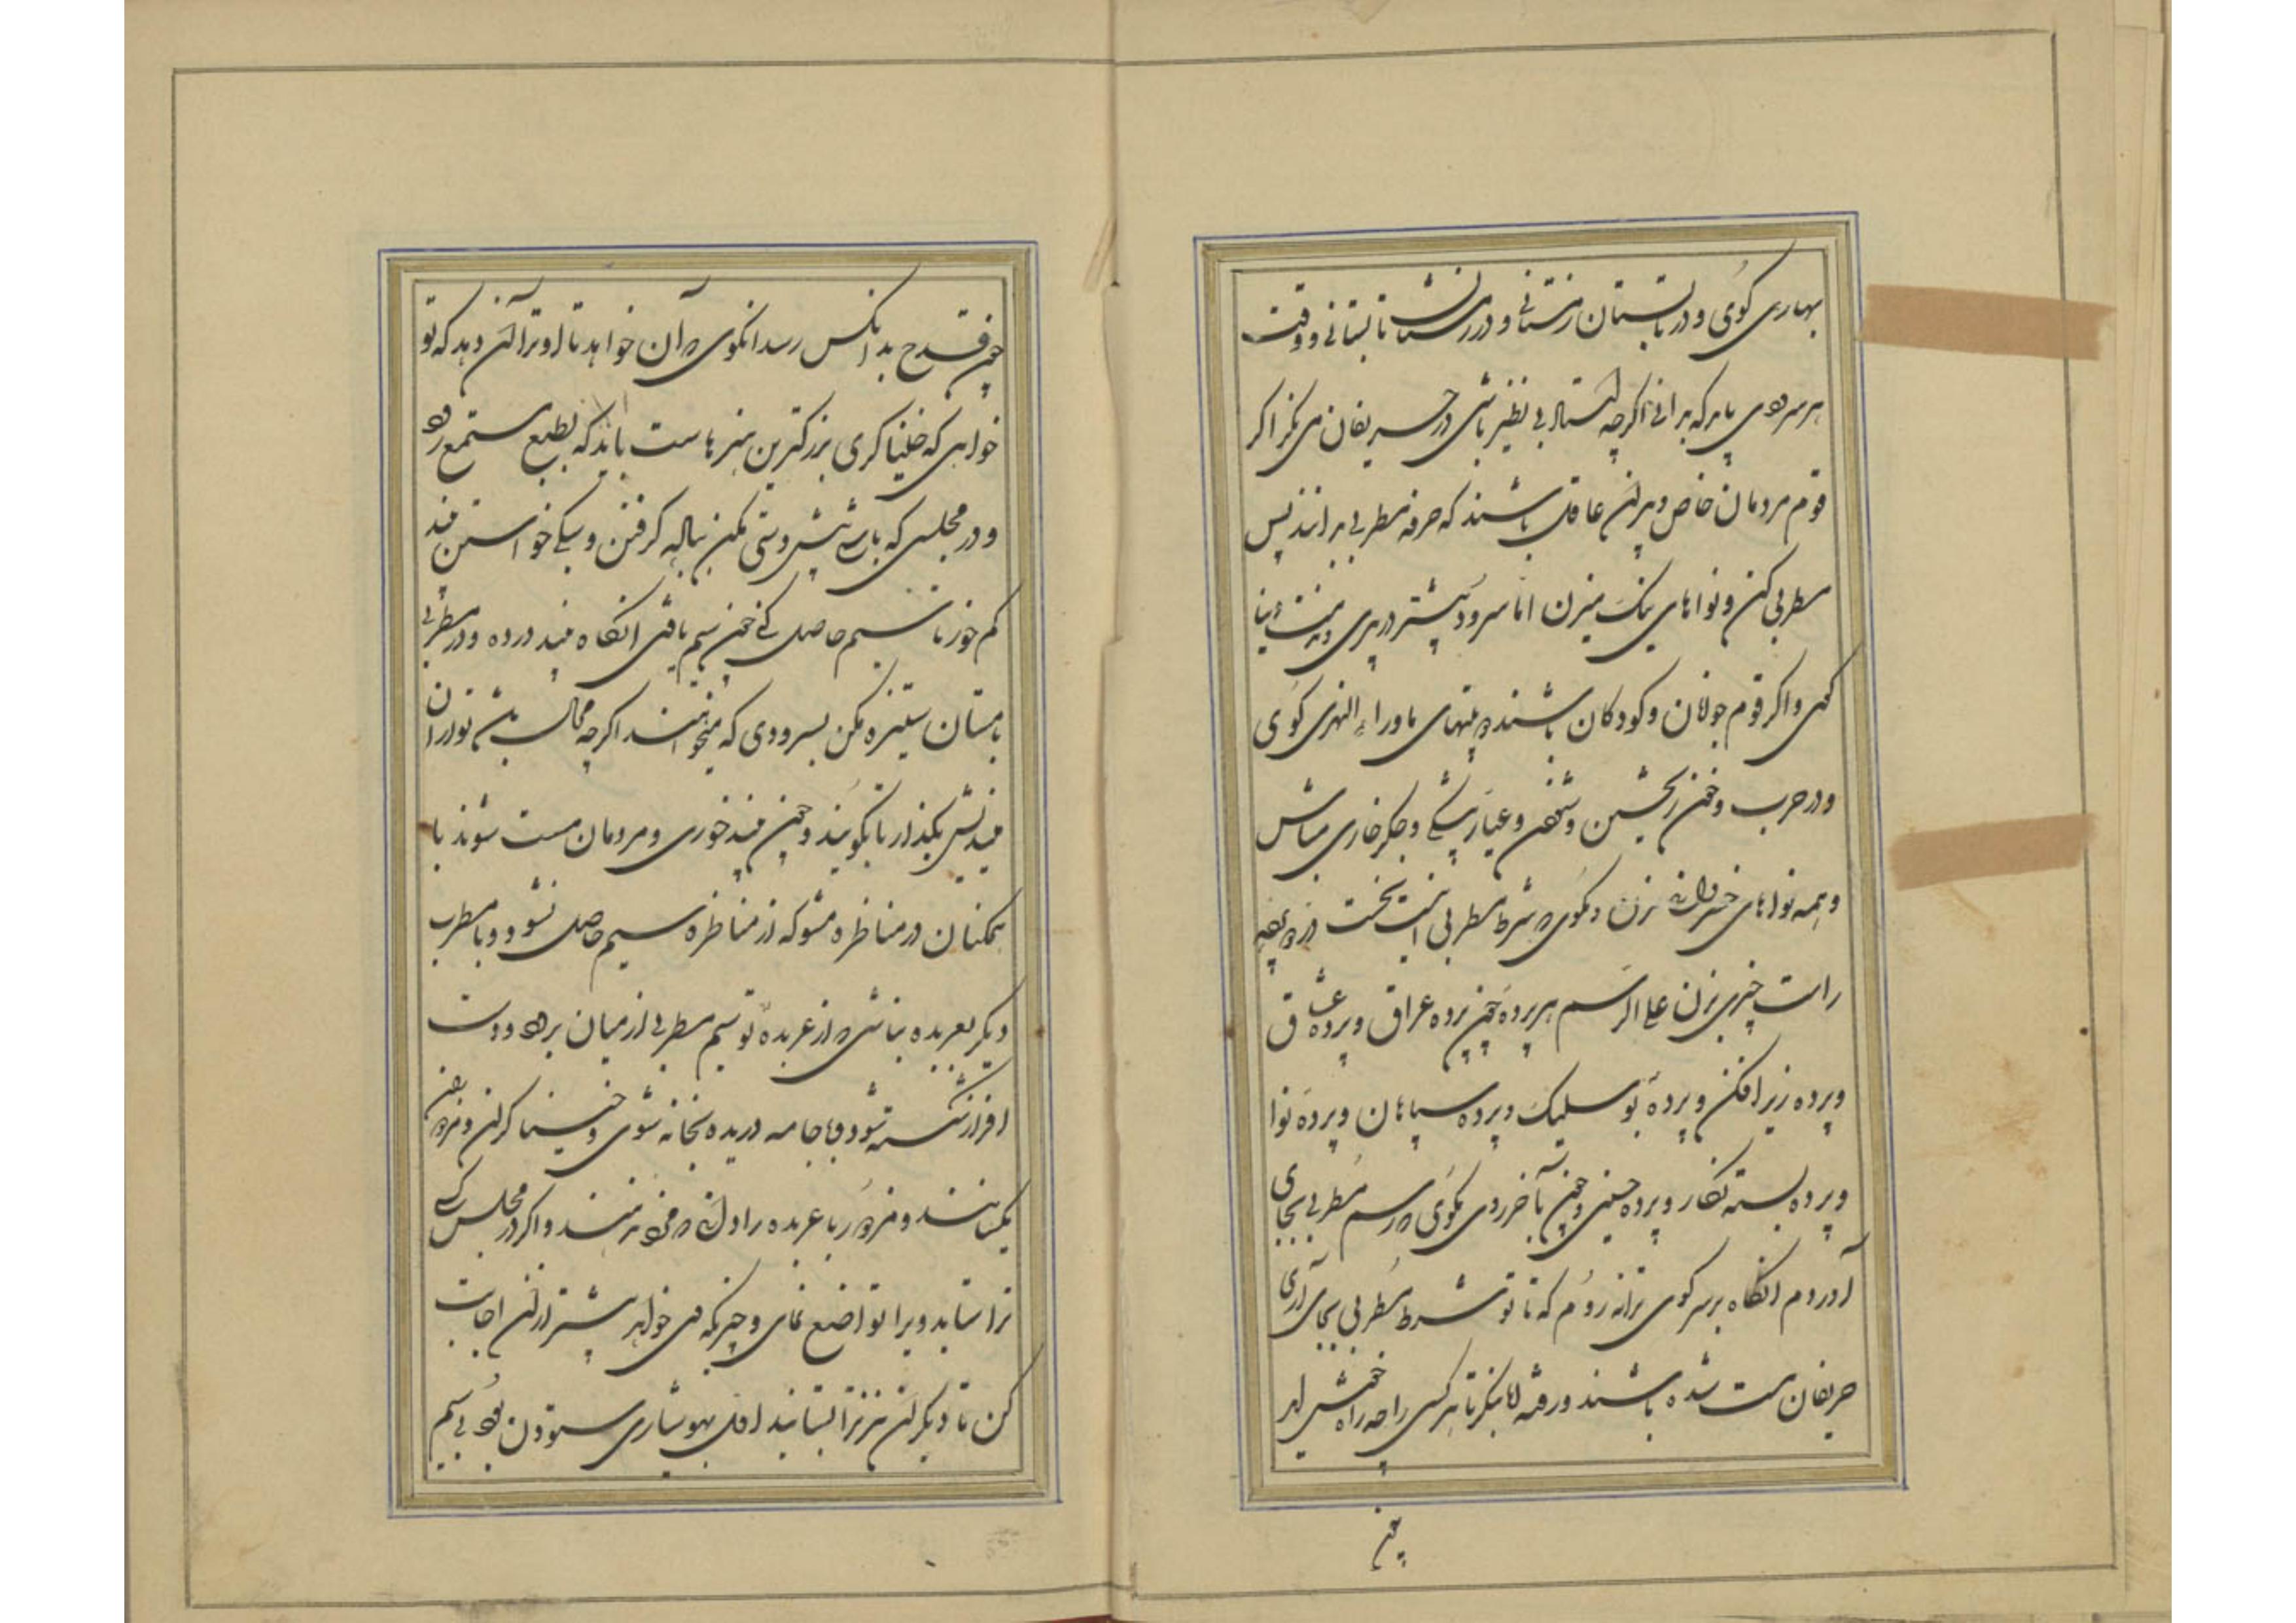 بهاری کوی و در تابستان زمستانی و در زمستان تابستانی و وقت
هر سرودی باید که بدانی اکرچه استاد بی نظیر باشی در حریفان می نکر اکر
قوم مردمان خاص و پیران عاقل باشند که حرفه مطربی بدانند پس
مطربی کن و نواهای نیک میزن اما سرود بیشتر در پیری و مذمت دنیا
کوی و اکر قوم جوانان و کودکان باشند بیتهای ماوراء النهری کوی
و در حرب و خون ریختن و ستودن و عیار پیشکی و جکر خاری مباش
و همه نواهای خسروانی مزن و مکوی که شرط مطربی اینست نخست در پرده
راست چیزی بزن علی الرسم هر پرده چون پرده عراق و پرده عشاق
و پرده زیرافکن و پرده بوسلیک و پرده سپاهان و پرده نوا
و پرده بسته نکار و پرده حسینی و چون بآخر روی بکوی که رسم مطربی بجای
آوردم آنکاه بر سر کوی ترانه روم که تا تو شرط مطربی بجای آری
حریفان مست شده باشند و رفته اما بنکر تا هر کسی را چه راه خوش آید
چون
چون قدح بدانکس رسد آنکوی که آن خواهد تا او ترا آن دهد که تو
خواهی که خنیاکری بزرکترین هنرهاست باید که بطبع مستمع رود
و در مجلسی که باشی پیش دستی مکن بیاله کرفتن و سیکی خواستن نبید
کم خور تا سیم حاصل کنی چون سیم یافتی آنکاه نبید در ده و در مطربی
با مستان ستیزه مکن بسرودی که میخواهند اکرچه محال باشد تو از آن
میندیش بکذار تا بکویند و چون نبید خوری و مردمان مست شوند با
همکنان در مناظره مشو که از مناظره سیم حاصل نشود و با مطرب
دیکر بعربده نباشی که از عربده تو سیم مطربی از میان برود و دست
افزار شکسته شود و با جامه دریده بخانه شوی و خنیاکران مزدور
یکسانند و مزدور با عربده را دانی که مزد نرسند و اکر در مجلس کسی
ترا ستاید ویرا تواضع نمای و چیزیکه می خواهد بیشتر ازان اجابت
کن تا دیکران نیز ترا بستایند اول بهوشیاری ستودن بود بی سیم